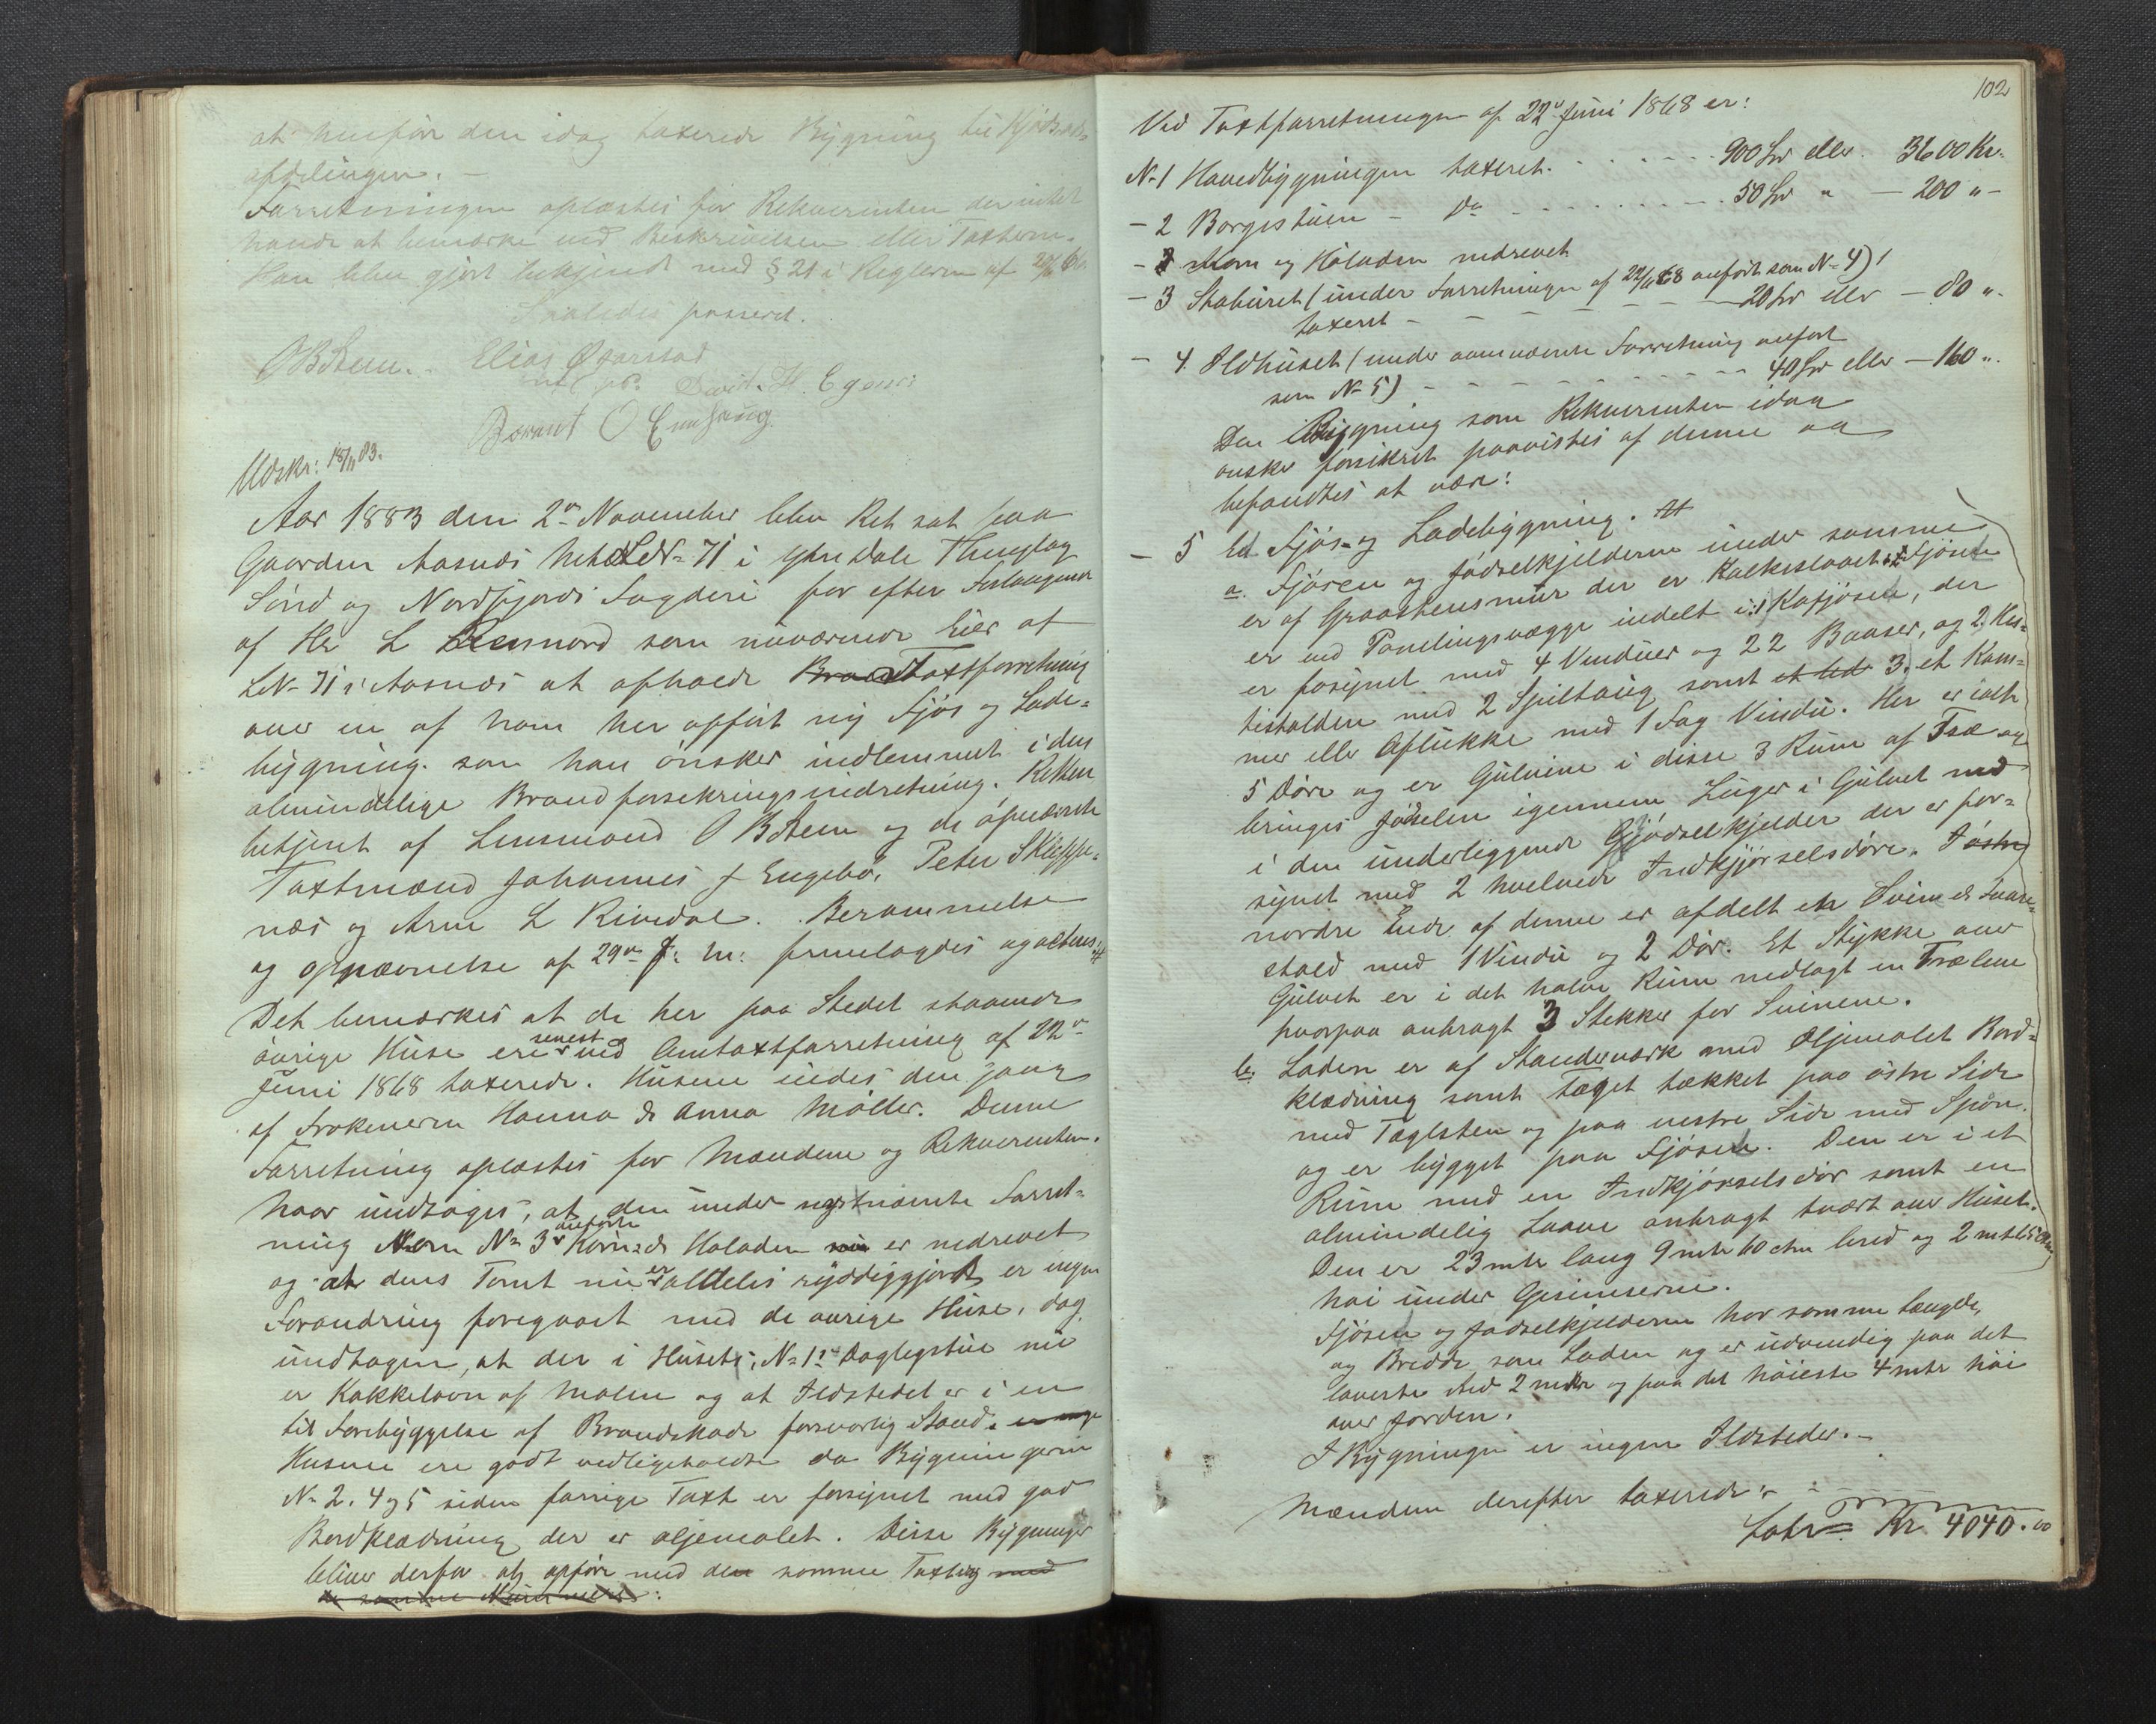 at henføre den idag taxerede Bygning til
afdelingen. —
Forretningen oplæstes for Rekvirenten der intet
havde at bemærke ved Beskrivelsen eller Taxterne.
Han blev gjort bekjendt med § 21 i Reglerne af
Saaledes passeret.
O B Steen. Elias Øgarstad
David H. Egenes
Berent O Enehaug.
Udskr: 18/11 83.
Aar 1883 den 2den November blev Ret sat paa
Gaarden Aasnæs LN- 71 i Ytre Dale Thinglag
Sönd og Nordfjords Fogderi for efter Forlangende
af Hr L som nuværende Eier af
LN- 71 i Aasnæs at afholde Brand Taxtforretning
over en af ham her opfört ny Fjös og Lade-
bygning. som han önsker indlemmet i den
almindelige Brandforsikringsindretning. Retten
betjent af Lensmand O B Steen og de opnævnte
Taxtmænd Johannes J Engebö, Peter Skieppe-
næs og Arne L Rivedal. Berammelse
og opnævnelse af 29de f: m: fremlagdes og
Det bemærkes at de her paa Stedet staaende
övrige Huse ere senest ved Omtaxtforretning af 22de
Juni 1868 taxerede. Husene eiedes den gang
af Frøknerne Hanna & Anna Møller. Denne
Forretning oplæstes for Mændene og Rekvirenten.
Naar undtages, at den under nystnævnte Forret-
ning som No 3 anførte Korn & Høladen nu er nedrevet
og at dens Tomt nu er aldeles ryddiggjort er ingen
Forandring foregaaet med de øvrige Huse, dog
undtagen, at der i Husets, No 1's Daglegstue nu
er Kakkelovn af Malm og at Ildstedet er i en
til Forebyggelse af Brandskade forsvarlig Stand.
Husene ere godt vedligeholdte da Bygningerne
No 2. 4 og 5 siden forrige Taxt er forsynet med god
Bordklædning der er oljemalet. Disse Bygninger
bliver derfor at opføre med den samme Taxt og med
de samme Nummere:
102
Ved Taxtforretningen af 22de Juni 1868 er:
No 1 Hovedbygningen taxeret. 900 Spd eller 3600 Kr.
- 2 Borgestuen — do 50 Spd " — 200 " -
- 3 Korn og Høladen nedrevet
- 3 Stabüret (under Forretningen af 22/6 68 anført som No 4)
taxeret — 20 Spd eller — 80 ".
- 4. Ildhuset (under ovennævnte Forretning anført
som No 5) — 40 Spd eller — 160 ".
Den Bygning som Rekvirenten idag
ønsker forsikret paavistes af denne og
befandtes at være:
- 5 En Fjös- og Ladebygning.
a. Fjösen og Gjödselkjelderen under samme
er af Graastensmur der er Kalkslaaet. Fjösen
er ved Panelingsvægge indelt i: 1 Kofjösen, der
er forsynet med 4 Vinduer og 22 Baaser, og 2. Hes-
testalden med 2 Spiltaug samt et led 3. et Kam-
mer eller Aflukke med 1 Fag Vindu. Her er ialt
5 Döre og er Gulvene i disse 3 Rum af Træ og
bringes Gjödselen igjennem Luger i Gulvet ned
i den underliggende Gjödselkjelder der er for-
synet med 2 hvelvede Indkjörselsdöre. I østre
nordre Ende af denne er afdelt et Svin & Faare-
stald med 1 Vindu og 2 Dör. Et Stykke over
Gulvet er i det halve Rum nedlagt en Trælem
hvorpaa anbragt 3 Stekker for Svinene.
b. Laden er af Standerværk med Oljemalet Bord-
klædning samt taget tækket paa östre Side
med Taglsten og paa vestre Side med Spön.
og er bygget paa Fjösen. Den er i et
Rum med en Indkjörselsdör samt en
almindelig Laave anbragt tvært over Huset.
Den er 23 mtr lang 9 mtr 60 ctm bred og 2 mtr 65 ctm
höi under Gesimserne.
Fjösen og Gjödselkjelderen har samme Længde,
og Bredde som Laden og er udvendig paa det
laveste Sted 2 mtr og paa det höieste 4 mtr höi
over Jorden.
I Bygningen er ingen Ildsteder. —
Mændene derefter taxerede:
Latr = Kr. 4040.00